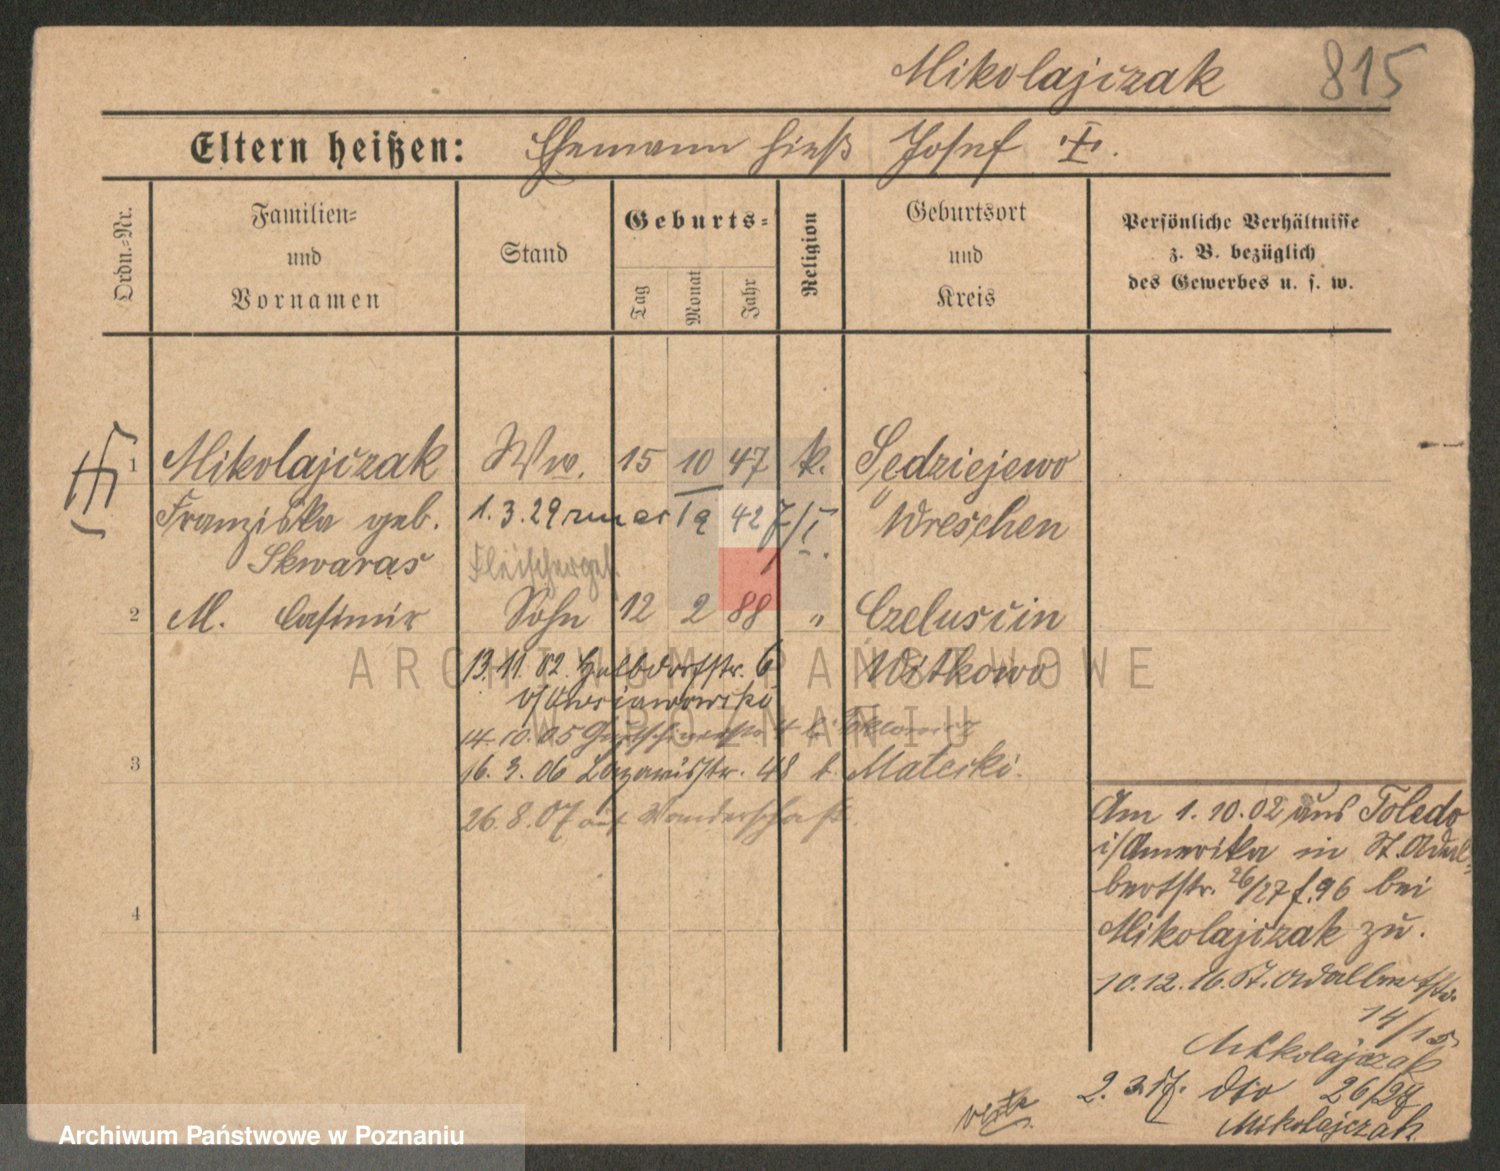 Mikolajczak 815
Eltern heißen: Ehemann hieß Josef
Ordn.=Nr.
Familien=
und
Vornamen
Stand
Geburts=
Tag
Monat
Jahr
Religion
Geburtsort
und
Kreis
Persönliche Verhältnisse
z. B. bezüglich
des Gewerbes u. s. w.
1 Mikolajczak Ww. 15 10 47 k. Sędziejewo
Franziska geb. 1.3.29 42 Wreschen
Skwaras Fleischerges.
2 M. Casimir Sohn 12 2 88 " Czeluscin
13.11.02. Halbdorfstr. 6 Witkowo
14.10.05
3 16.3.06 Lazarusstr. 48 b. Matecki.
26.8.07 auf Wanderschaft.
4
Am 1.10.02 aus Toledo
i/Amerika in St. Adal-
bertstr. 26/27 f. 96 bei
Mikolajczak zu.
10.12.16. St. Adalbertstr.
14/15
Mikolajczak
2.3.17. dto 26/27
Mikolajczak
ARCHIWUM PAŃSTWOWE
W POZNANIU
Archiwum Państwowe w Poznaniu